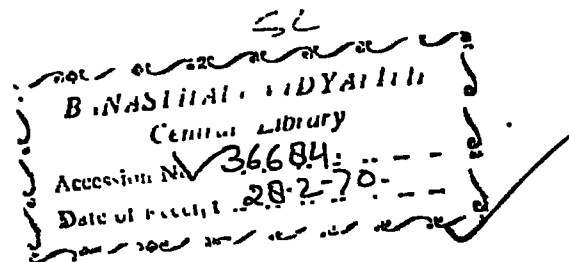 SL
BANASTHALI VIDYAPITH
Central Library
Accession No. 36684
Date of Receipt 28-2-70